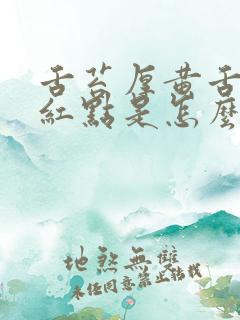 舌苔厚黄舌
红點是怎麼
地煞無雙
未经同意禁止转载